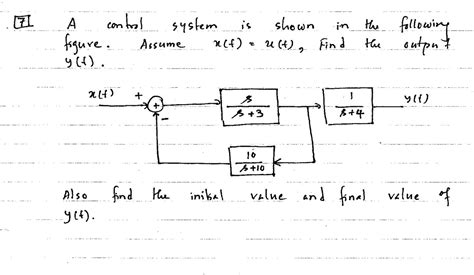 7 A control system is shown in the following
figure. Assume x(t) = u(t), Find the output
y(t).
x(t) + + s/s+3 1/s+4 y(t)
−
10/s+10
Also find the initial value and final value of
y(t).